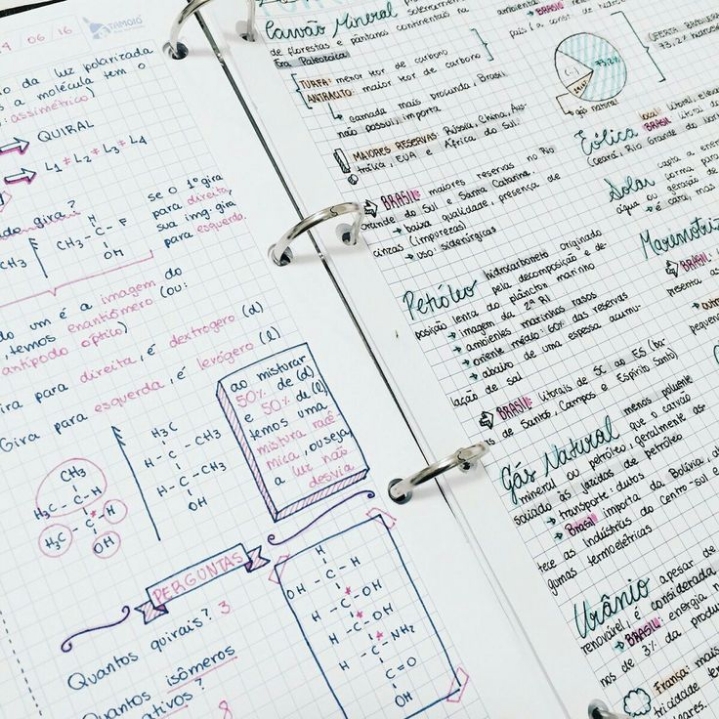 06 / 16
TAMOIO
da luz polarizada
a molécula tem o
assimétrico)
QUIRAL
L1 * L2 * L3 * L4
gira?
se o 1º gira
para direita,
sua img. gira
para esquerda.
CH3
H
CH3 - C - F
OH
um é a imagem do
, temos enantiômero (ou:
antípodo óptico)
para direita, é dextrogero (d)
Gira para esquerda, é levógero (l)
ao misturar
50% de (d)
e 50% de (l)
temos uma
mistura racê
mica, ou seja,
a luz não
desvia
CH3
H3C - C - H
H3C - C - H
OH
H3C
H - C - CH3
H - C - CH3
OH
PERGUNTAS
Quantos quirais? 3
Quantos isômeros
ativos?
8
H
OH - C - H
H - C - OH
H - C - OH
H - C - NH2
C = O
OH
Carvão Mineral
de florestas e pântanos continentais na
Era Paleozóica
TURFA: menor teor de carbono
ANTRACITO: maior teor de carbono
camada mais profunda, Brasil
não possui, importa
MAIORES RESERVAS: Rússia, China, Aus-
trália, EUA e África do Sul
BRASIL: maiores reservas no Rio
Grande do Sul e Santa Catarina.
baixa qualidade, presença de
cinzas (impurezas)
uso: siderúrgicas
Petróleo hidrocarboneto originado
pela decomposição e de-
posição lenta do plâncton marinho
imagem da 2ª RI
ambientes marinhos rasos
oriente médio: 60% das reservas
abaixo de uma espessa acumu-
lação de sal
BRASIL: litorais de SC ao ES (ba-
s de Santos, Campos e Espírito Santo)
Gás Natural menos poluente
que o carvão
mineral ou petróleo, geralmente as-
sociado às jazidas de petróleo
transporte: dutos
Brasil importa da Bolívia,
tece as indústrias do Centro-sul e
gumas termoelétricas
Urânio apesar de
renovável, é considerada
BRASIL: energia
nos de 3% da
França: mais
tricidade
BRASIL
gás natural
Eólica
BRASIL
(Ceará, Rio Grande do
Solar
Maremotriz
BRASIL: